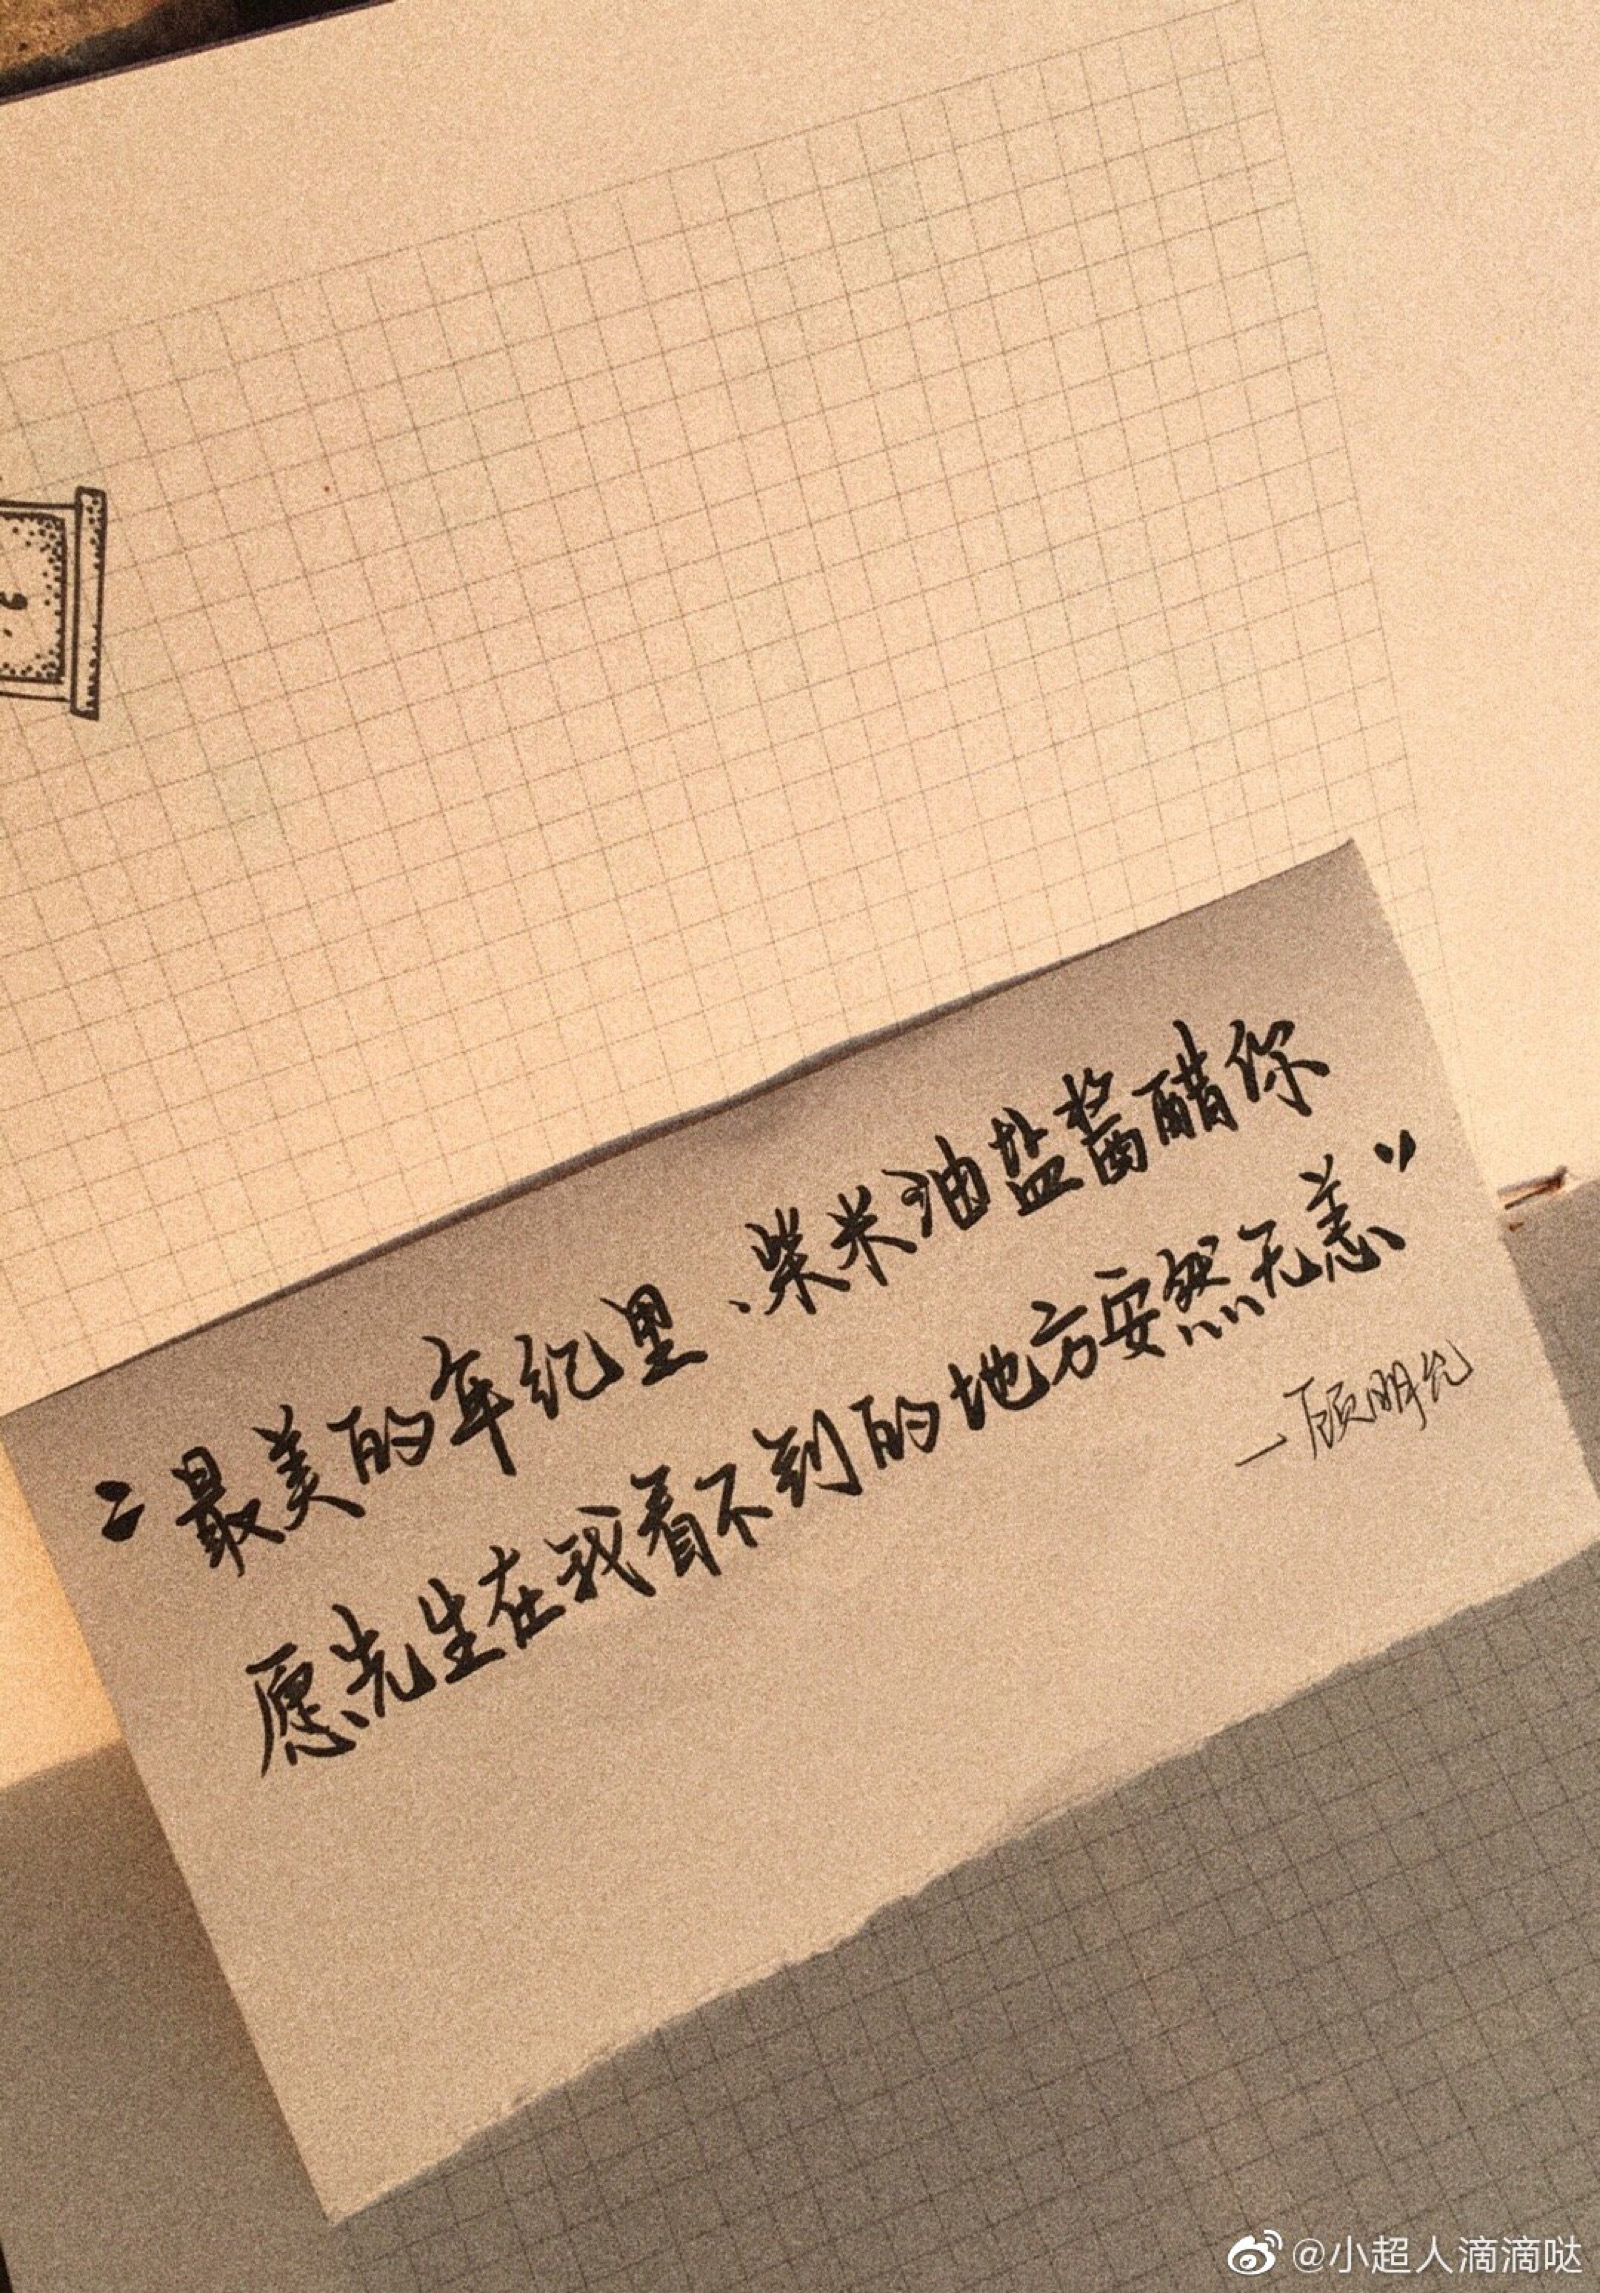 “最美的年纪里、柴米油盐酱醋你
愿先生在我看不到的地方安然无恙”
—顾明允
@小超人滴滴哒